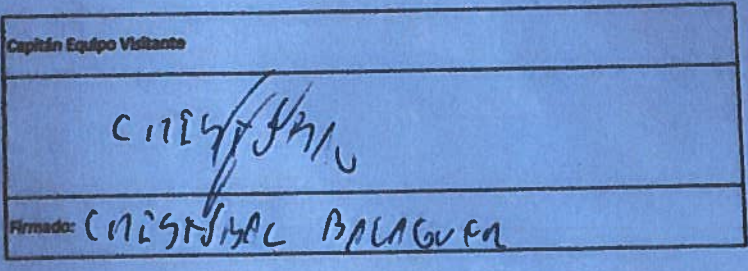 Capitán Equipo Visitante
CRISTOBAL
Firmado: CRISTOBAL BALAGUER